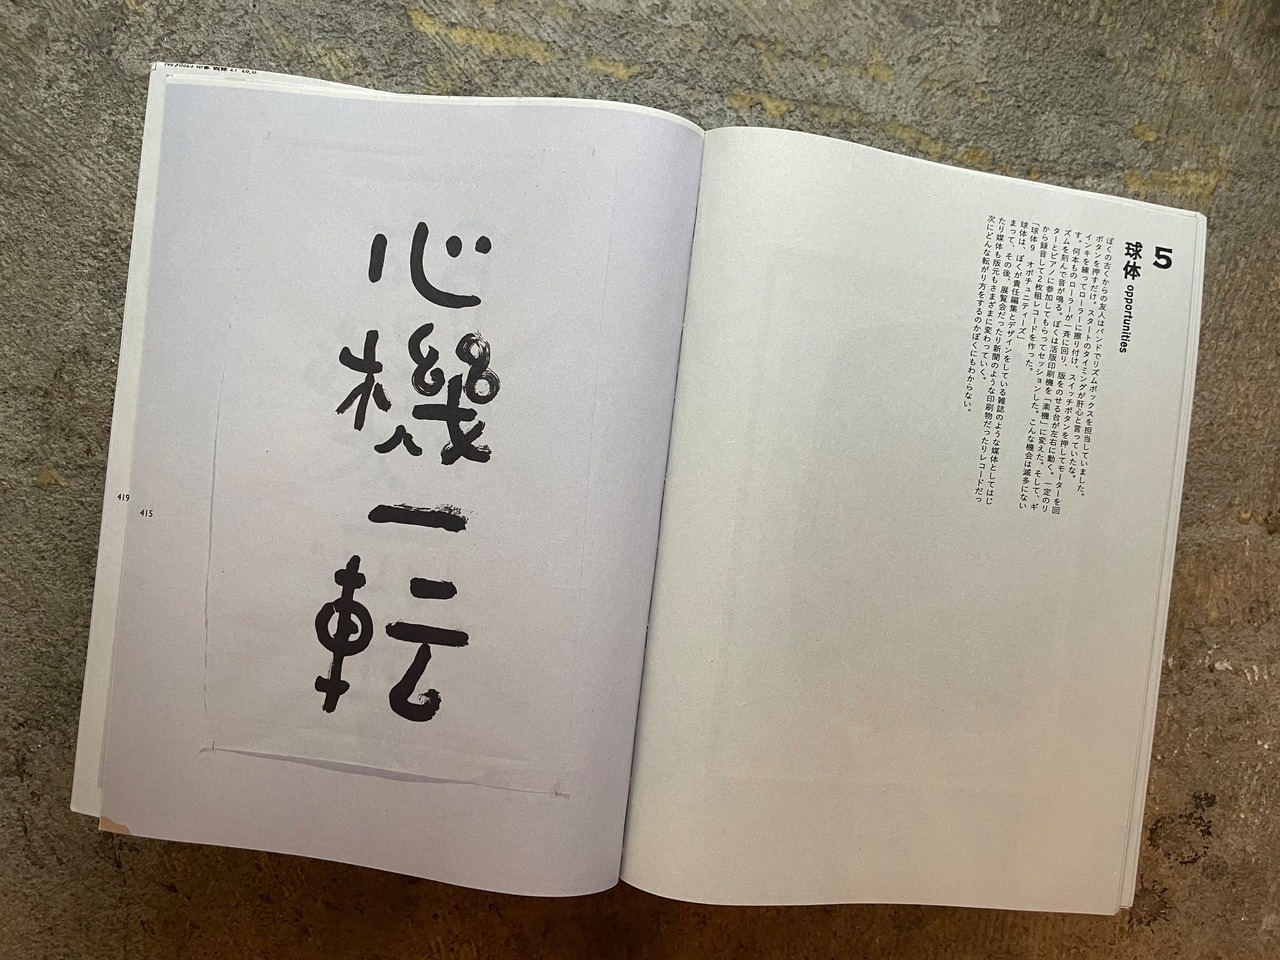 心機一転
419
415
5
球体 opportunities
ぼくの古くからの友人はバンドでリズムボックスを担当していました。
ボタンを押すだけ。スタートのタイミングが肝心と言っていたな。
インキを練ってローラーに擦り付け、スイッチボタンを押してモーターを回
す。何本ものローラーが一斉に回り、版をのせる台が左右に動く。一定のリ
ズムを刻んで音が鳴る。ぼくは活版印刷機を「楽機」に変えた。そして、ギ
ターとピアノに参加してもらってセッションした。こんな機会は滅多にない
から録音して2枚組レコードを作った。
「球体9 オポチュニティーズ」
球体は、ぼくが責任編集とデザインをしている雑誌のような媒体としてはじ
まって、その後、展覧会だったり新聞のような印刷物だったりレコードだっ
たり媒体も版元もさまざまに変わっていく。
次にどんな転がり方をするのかぼくにもわからない。